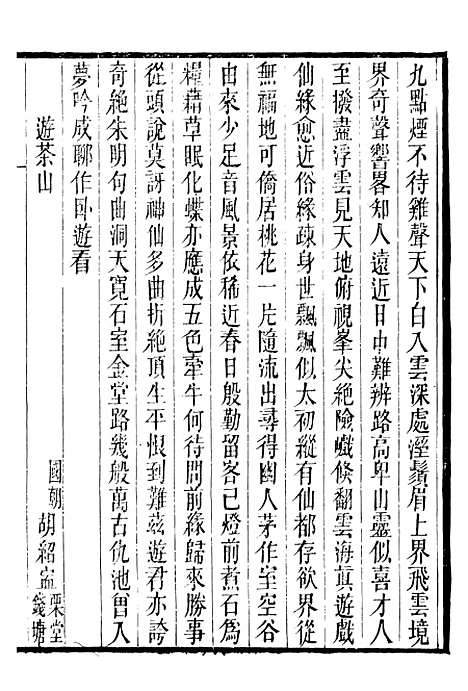 九點煙不待雞聲天下白入雲深處溼鬚眉上界飛雲境
界奇聲響畧知人遠近日中難辨路高卑山靈似喜才人
至撥盡浮雲見天地俯視峯尖絶險巇倏翻雲海眞遊戲
仙緣愈近俗緣疎身世飄飄似太初縱有仙都存欲界從
無福地可僑居桃花一片隨流出尋得幽人茅作室空谷
由來少足音風景依稀近春日殷勤留客已燈前煮石爲
糧藉草眠化蝶亦應成五色牽牛何待問前緣歸來勝事
從頭說莫訝神仙多曲折絶頂生平恨到難兹遊君亦誇
奇絶朱明句曲洞天寛石室金堂路幾般萬古仇池曾入
夢吟成聊作卧遊看
遊茶山
國朝胡紹鼎 棗堂 錢塘